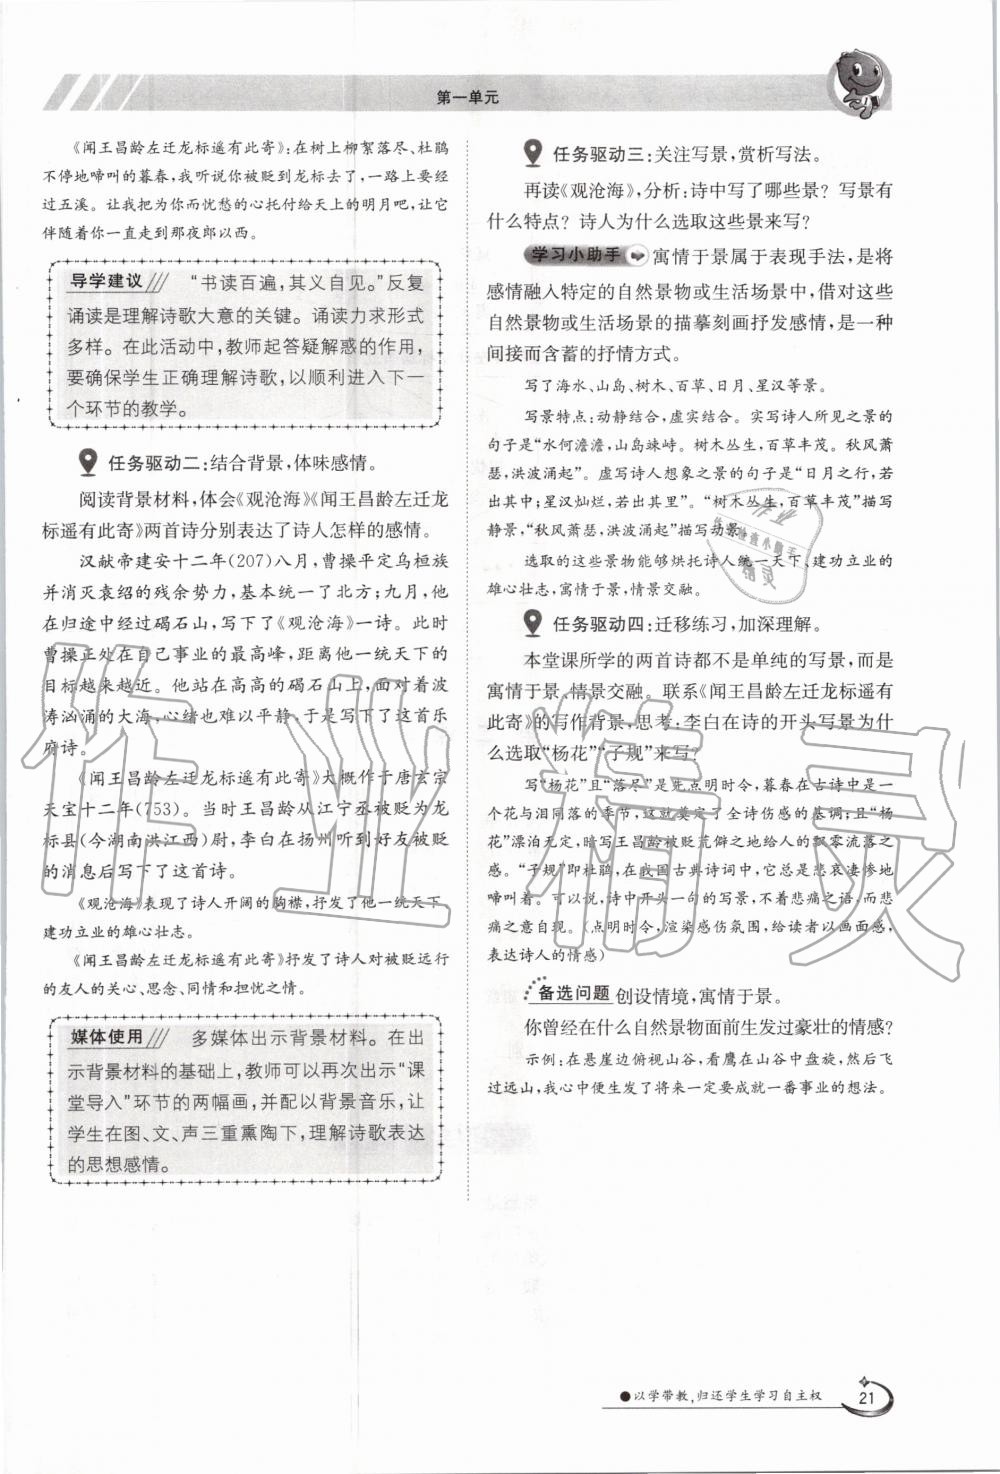 第一单元
《闻王昌龄左迁龙标遥有此寄》:在树上柳絮落尽、杜鹃
不停地啼叫的暮春,我听说你被贬到龙标去了,一路上要经
过五溪。让我把为你而忧愁的心托付给天上的明月吧,让它
伴随着你一直走到那夜郎以西。
导学建议 “书读百遍,其义自见。”反复
诵读是理解诗歌大意的关键。诵读力求形式
多样。在此活动中,教师起答疑解惑的作用,
要确保学生正确理解诗歌,以顺利进入下一
个环节的教学。
任务驱动二:结合背景,体味感情。
阅读背景材料,体会《观沧海》《闻王昌龄左迁龙
标遥有此寄》两首诗分别表达了诗人怎样的感情。
汉献帝建安十二年(207)八月,曹操平定乌桓族
并消灭袁绍的残余势力,基本统一了北方;九月,他
在归途中经过碣石山,写下了《观沧海》一诗。此时
曹操正处在自己事业的最高峰,距离他一统天下的
目标越来越近。他站在高高的碣石山上,面对着波
涛汹涌的大海,心绪也难以平静,于是写下了这首乐
府诗。
《闻王昌龄左迁龙标遥有此寄》大概作于唐玄宗
天宝十二年(753)。当时王昌龄从江宁丞被贬为龙
标县(今湖南洪江西)尉,李白在扬州听到好友被贬
的消息后写下了这首诗。
《观沧海》表现了诗人开阔的胸襟,抒发了他一统天下、
建功立业的雄心壮志。
《闻王昌龄左迁龙标遥有此寄》抒发了诗人对被贬远行
的友人的关心、思念、同情和担忧之情。
媒体使用 多媒体出示背景材料。在出
示背景材料的基础上,教师可以再次出示“课
堂导入”环节的两幅画,并配以背景音乐,让
学生在图、文、声三重熏陶下,理解诗歌表达
的思想感情。
任务驱动三:关注写景,赏析写法。
再读《观沧海》,分析:诗中写了哪些景?写景有
什么特点?诗人为什么选取这些景来写?
学习小助手 寓情于景属于表现手法,是将
感情融入特定的自然景物或生活场景中,借对这些
自然景物或生活场景的描摹刻画抒发感情,是一种
间接而含蓄的抒情方式。
写了海水、山岛、树木、百草、日月、星汉等景。
写景特点:动静结合,虚实结合。实写诗人所见之景的
句子是“水何澹澹,山岛竦峙。树木丛生,百草丰茂。秋风萧
瑟,洪波涌起”。虚写诗人想象之景的句子是“日月之行,若
出其中;星汉灿烂,若出其里”。“树木丛生,百草丰茂”描写
静景,“秋风萧瑟,洪波涌起”描写动景。
选取的这些景物能够烘托诗人统一天下、建功立业的
雄心壮志,寓情于景,情景交融。
任务驱动四:迁移练习,加深理解。
本堂课所学的两首诗都不是单纯的写景,而是
寓情于景、情景交融。联系《闻王昌龄左迁龙标遥有
此寄》的写作背景,思考:李白在诗的开头写景为什
么选取“杨花”“子规”来写?
写“杨花”且“落尽”是先点明时令,暮春在古诗中是一
个花与泪同落的季节,这就奠定了全诗伤感的基调;且“杨
花”漂泊无定,暗写王昌龄被贬荒僻之地给人的飘零流落之
感。“子规”即杜鹃,在我国古典诗词中,它总是悲哀凄惨地
啼叫着。可以说,诗中开头一句的写景,不着悲痛之语,而
悲痛之意自现。(点明时令,渲染感伤氛围,给读者以画面感,
表达诗人的情感)
备选问题 创设情境,寓情于景。
你曾经在什么自然景物面前生发过豪壮的情感?
示例:在悬崖边俯视山谷,看鹰在山谷中盘旋,然后飞
过远山,我心中便生发了将来一定要成就一番事业的想法。
作业精灵
●以学带教,归还学生学习自主权
21